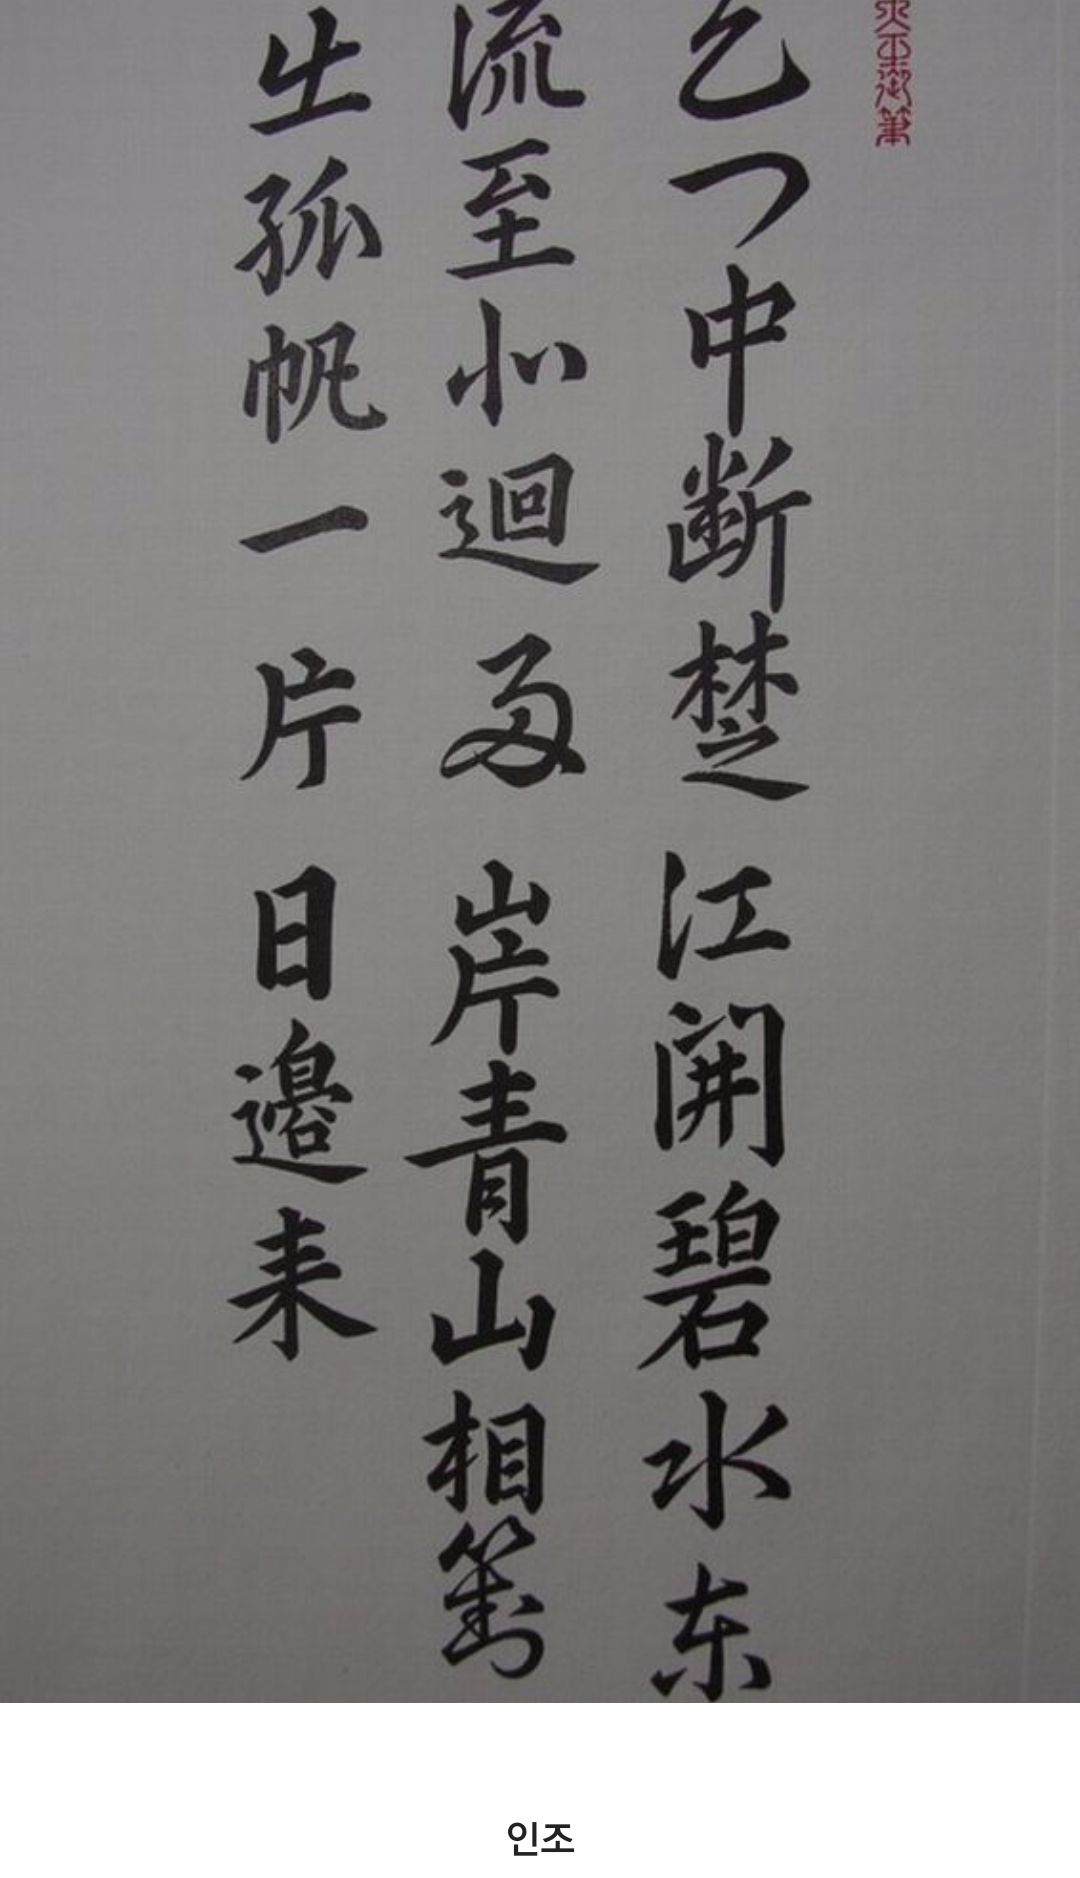 天门中断楚江開碧水东
流至此迴両岸青山相對
出孤帆一片日邊来
인조